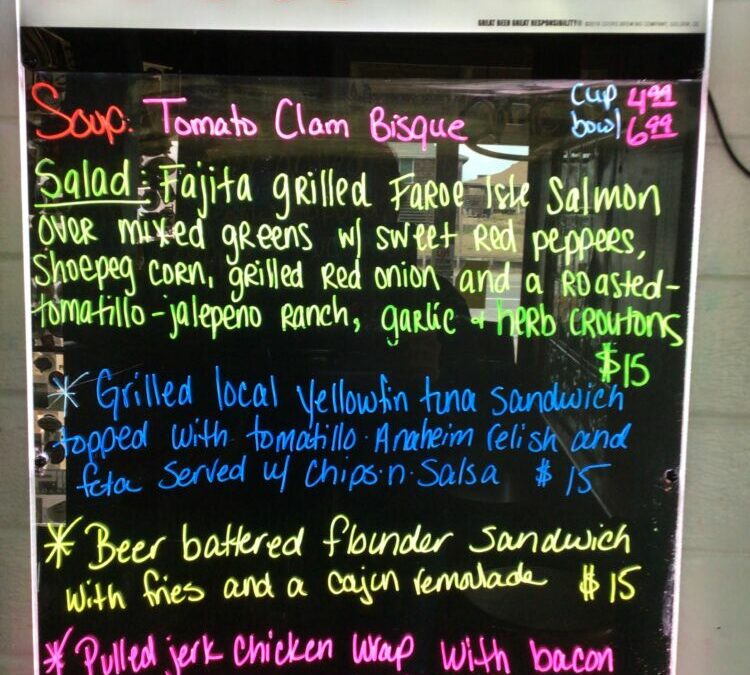 GREAT BEER GREAT RESPONSIBILITY®
Soup: Tomato Clam Bisque
cup 4.99
bowl 6.99
Salad: Fajita grilled Faroe Isle Salmon
over mixed greens w/ sweet red peppers,
Shoepeg corn, grilled red onion and a roasted-
tomatillo-jalepeno ranch, garlic + herb croutons
$15
* Grilled local yellowfin tuna sandwich
topped with tomatillo-Anaheim relish and
feta served w/ chips-n-salsa $15
* Beer battered flounder sandwich
with fries and a cajun remoulade $15
* Pulled jerk chicken wrap with bacon